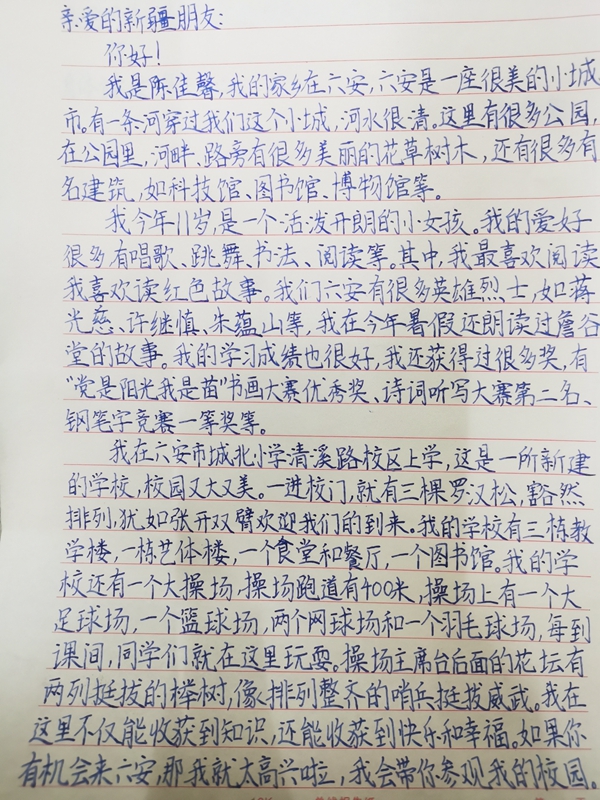 亲爱的新疆朋友:
你好!
我是陈佳馨,我的家乡在六安,六安是一座很美的小城
市。有一条河穿过我们这个小城,河水很清。这里有很多公园,
在公园里,河畔、路旁有很多美丽的花草树木,还有很多有
名建筑,如科技馆、图书馆、博物馆等。
我今年11岁,是一个活泼开朗的小女孩。我的爱好
很多有唱歌、跳舞、书法、阅读等。其中,我最喜欢阅读
我喜欢读红色故事。我们六安有很多英雄烈士,如蒋
光慈、许继慎、朱蕴山等,我在今年暑假还朗读过詹谷
堂的故事。我的学习成绩也很好,我还获得过很多奖,有
“党是阳光我是苗”书画大赛优秀奖、诗词听写大赛第二名、
钢笔字竞赛一等奖等。
我在六安市城北小学清溪路校区上学,这是一所新建
的学校,校园又大又美。一进校门,就有三棵罗汉松,豁然
排列,犹如张开双臂欢迎我们的到来。我的学校有三栋教
学楼,一栋艺体楼,一个食堂和餐厅,一个图书馆。我的学
校还有一个大操场,操场跑道有400米,操场上有一个大
足球场,一个篮球场,两个网球场和一个羽毛球场,每到
课间,同学们就在这里玩耍。操场主席台后面的花坛有
两列挺拔的榉树,像排列整齐的哨兵挺拔威武。我在
这里不仅能收获到知识,还能收获到快乐和幸福。如果你
有机会来六安,那我就太高兴啦,我会带你参观我的校园。